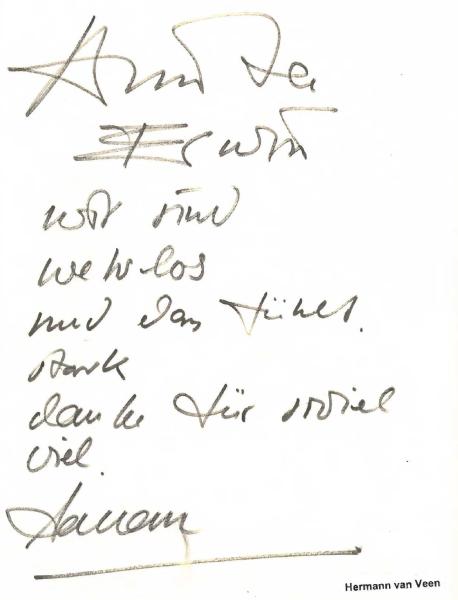 Erwin
wir sind
wehrlos
und das fühlt
stark
danke für soviel
viel.
Herman
Hermann van Veen